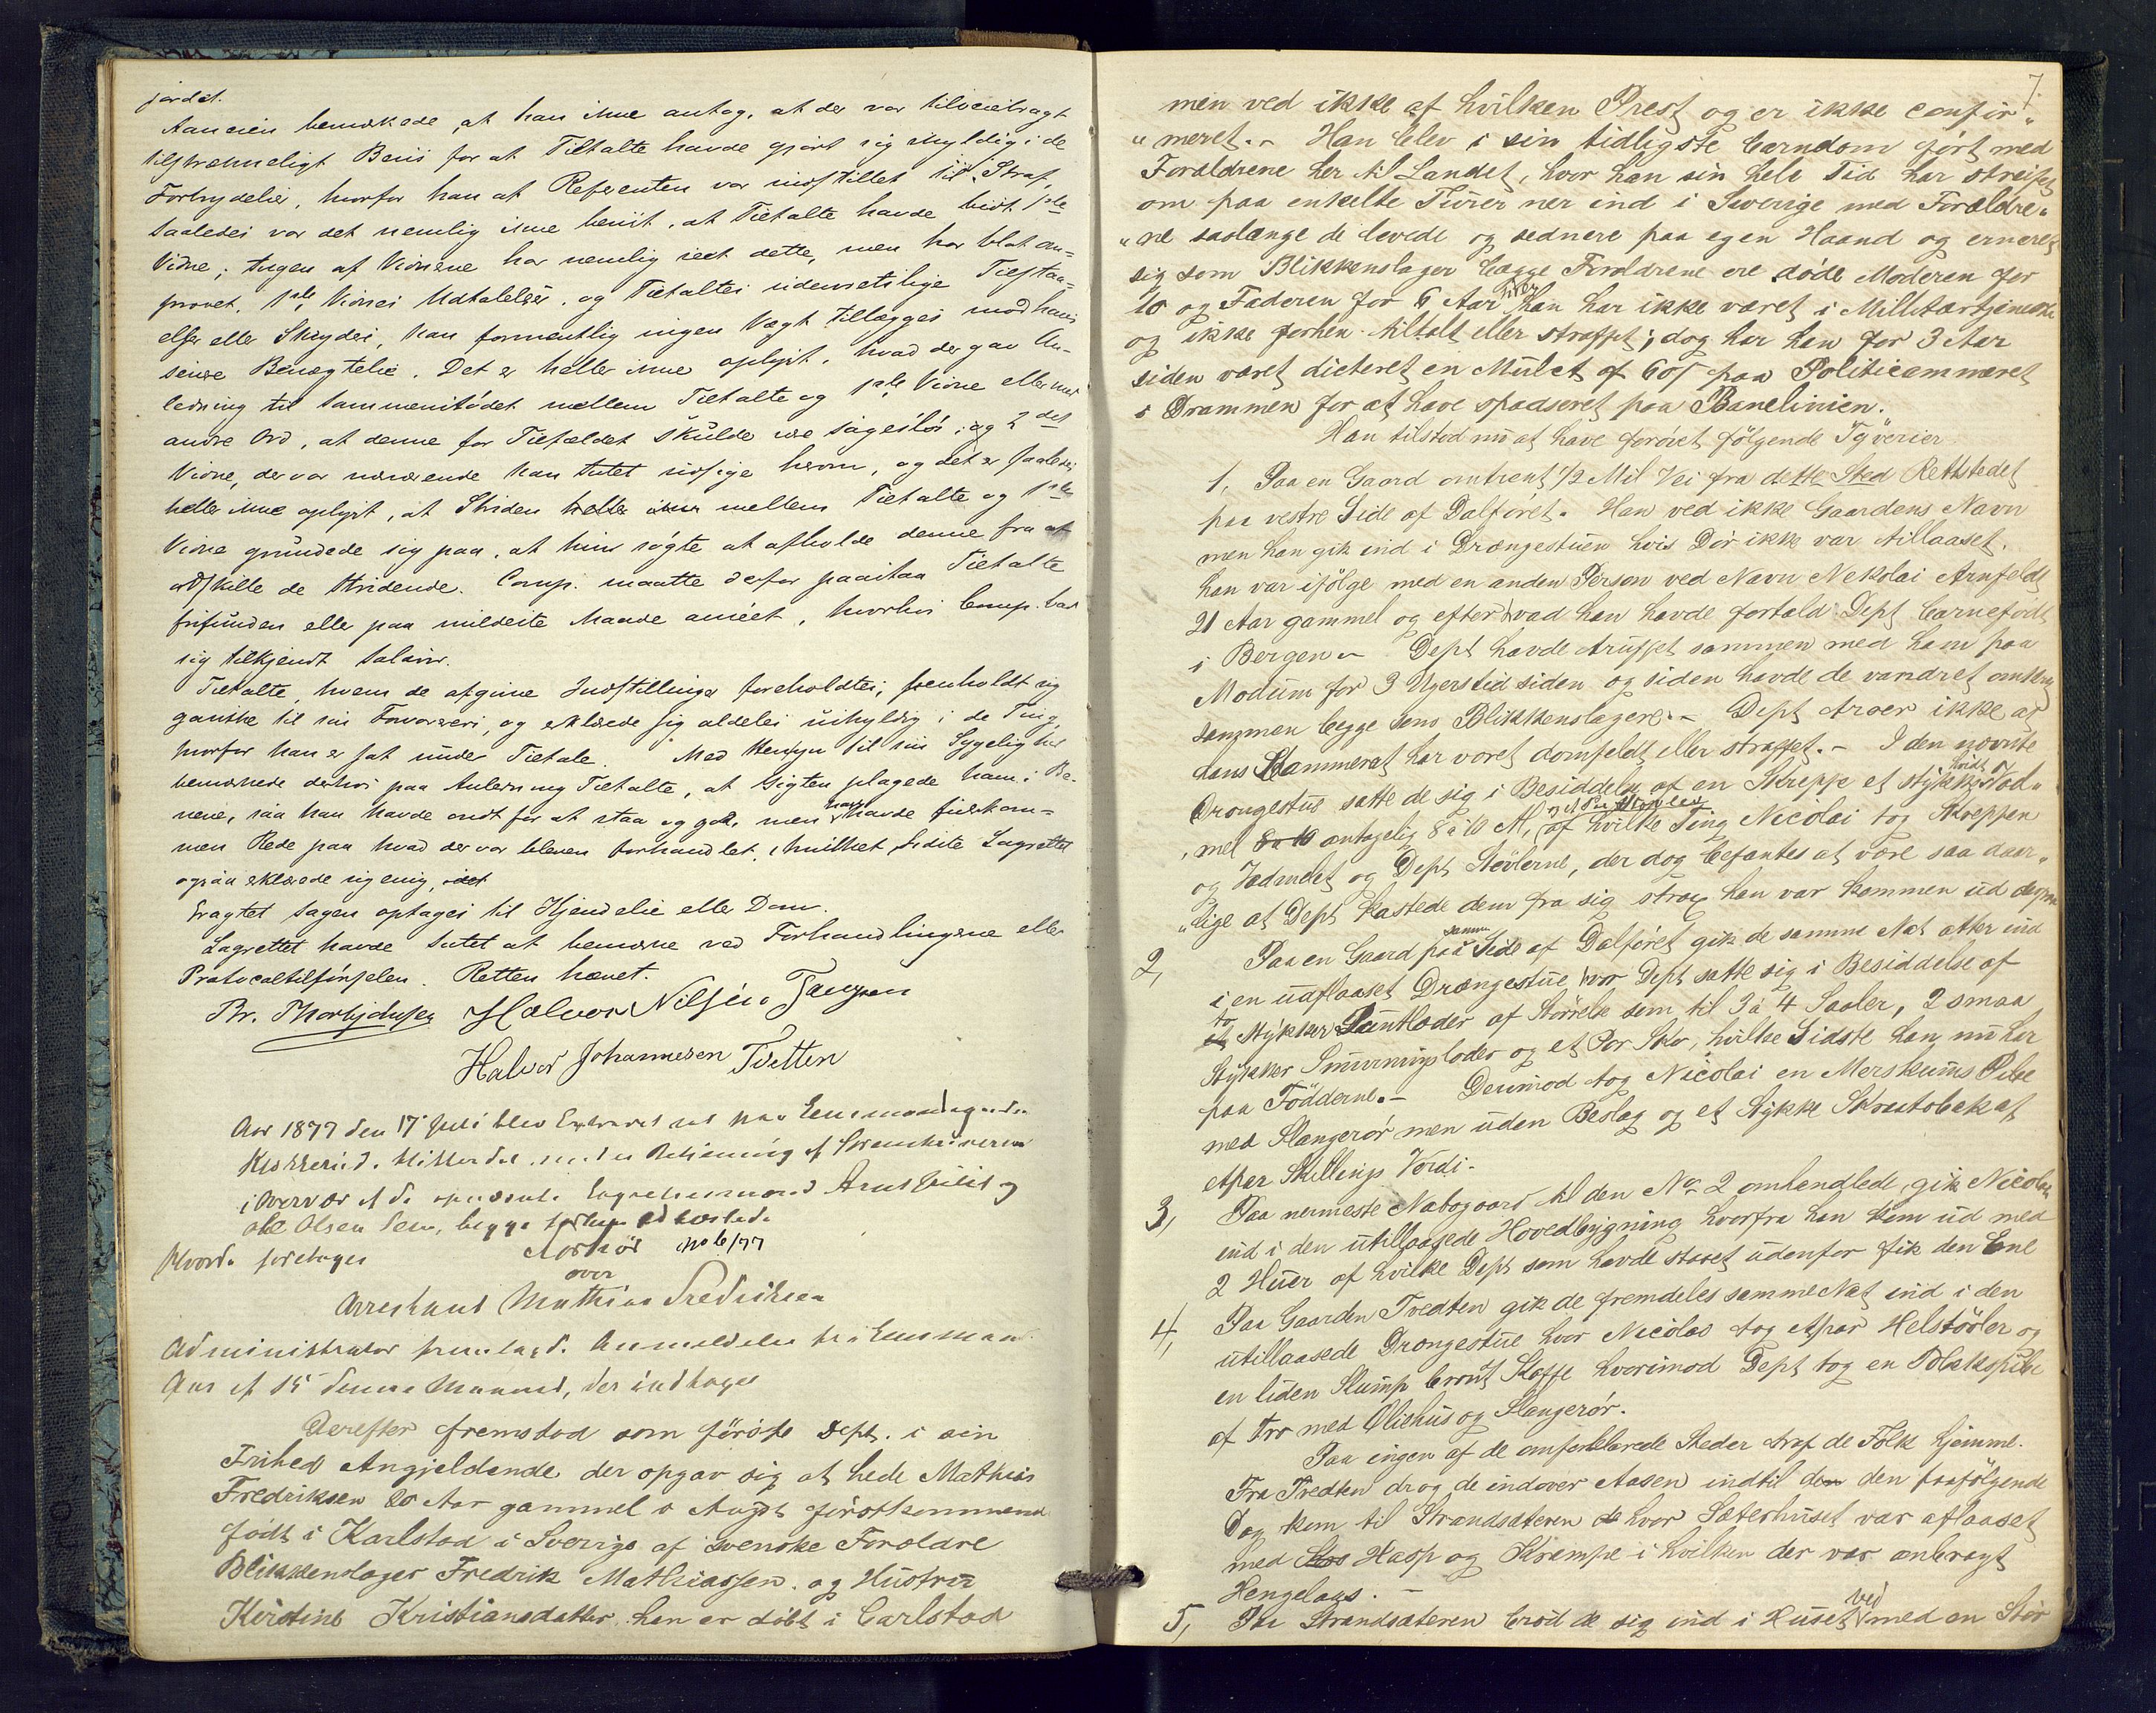 jordet.
Aancien bemærkede, at han ikke antog, at der var tilveiebragt
tilstrækkeligt Beviis for at Tiltalte havde gjort sig skyldig i de
Forbrydelser, hvorfor han af Referenten var indstillet til Straf.
Saaledes var det nemlig ikke beviist, at Tiltalte havde bidt 1ste
Vidne; Ingen af Vidnerne har nemlig seet dette, men har blot an-
ført 1ste Vidnes Udtalelser, og Tiltaltes udenretslige Tilstaa-
elser eller Skryderi, kan formentlig ingen Vægt tillægges mod hans
senere Benægtelse. Det er heller ikke oplyst, hvad der gav An-
ledning til Sammenstødet mellem Tiltalte og 1ste Vidne eller med
andre Ord, at denne for Tilfældet skulde være sagesløs; og 2det
Vidne, der var nærværende kan Intet udsige herom, og det er saaledes
heller ikke oplyst, at Striden mellem Tiltalte og 1ste
Vidne grundede sig paa, at hiin søgte at afholde denne fra at
adskille de Stridende. Comp. maatte derfor paastaa Tiltalte
frifunden eller paa mildeste Maade anseet, hvorhos Comp. bad
sig tilkjendt Salair.
Tiltalte, hvem de afgivne Indstillinger foreholdtes, henholdt sig
ganske til sin Forsvarer, og erklærede sig aldeles uskyldig i de Ting,
hvorfor han er sat under Tiltale. Med Hensyn til sin Sygelighed
bemærkede derhos paa Anledning Tiltalte, at Gigten plagede ham i Be-
nene, saa han havde ondt for at staa og gaa, men han havde fuldkom-
men Rede paa hvad der var bleven forhandlet, i hvilket Sidste Lagrettet
ogsaa erklærede sig enig,
Eragtet Sagen optages til Kjendelse eller Dom.
Lagrettet havde Intet at bemærke ved Forhandlingerne eller
Protocoltilførselen. Retten hævet.
Br. Thorbjørnsen Halvor Nilsen Tangen
Halvor Johannesen Tvetten
Aar 1877 den 17 Juli blev Extraret sat paa Lensmandsgaarden
Kløkkerud. Rettens Betjening af Sorenskriveren
i Overvær af de opnævnte Lagrettesmænd
Ole Olsen Seen, begge
Hvorda foretoges Forhør No 6/77
over
Arrestant Mathias Fredriksen
Administrator fremlagde Anmeldelse fra Lensmand
Aas af 15 denne Maaned, der indtages
Derefter fremstod som første Dept. i sin
Frihed Angjeldende der opgav sig at hede Mathias
Fredriksen 20 Aar gammel Augst førstkommend
født i Karlstad i Sverige af svenske Foræeldre
Blikkenslager Fredrik Mathiassen og Hustru
Kirstine Kristiansdatter han er døbt i Carlstad
7.
men ved ikke af hvilken Prest og er ikke confir„
„meret.- Han blev i sin tidligste barndom ført med
Forældrene her til Landet, hvor han sin hele Tid har streifet
om paa enkelte Turer nær ind i Sverige med Forældre„
„ne saalænge de levede og sednere paa egen Haand og ernæret
sig som Blikkenslager begge Forældrene ere døde Moderen for
10 og Faderen for 6 Aar siden han har ikke været i Militærtjeneste
og ikke forhen tiltalt eller straffet; dog har han for 3 Aar
siden været dicteret en Mulct af 60ß paa Politicammeret
i Drammen for at have spadseret paa Banelinien.
Han tilstod nu at have forøvet følgende Tyverier
1, Paa en Gaard omtrent 1/2 Mil Vei fra dette Sted Rettstedet
paa vestre Side af Dalføret. Han ved ikke Gaardens Navn
men han gik ind i Drængestuen hvis Dør ikke var tillaaset.
han var ifølge med en anden Person ved Navn Nekolai Arnfeldt
21 Aar gammel og efter hvad han havde fortald Dept barnefødt
i Bergen - Dept havde truffet sammen med ham paa
Modum for 3 Ugerstid siden og siden havde de vandret omkring
sammen begge som Blikkenslagere.- Dept troer ikke at
hans Kammerat har været domfeldt eller straffet.- I den nævnte
Drængestue satte de sig i Besiddelse af en Skreppe et stykke hvidt Vad„
„mel antagelig 8 à 10 Al, og et Par Støvler af hvilke Ting Nicolai tog Skreppen
og Vadmelet og Dept Støvlerne, der dog befantes at være saa daar„
„lige at Dept kastede dem fra sig strax han var kommen ud derfra
2, Paa en Gaard paa samme Side af Dalføret gik de samme Nat atter ind
i en uaflaaset Drængestue hvor Dept satte sig i Besiddelse af
to Stykker Puntlæder af Størrelse som til 3 à 4 Saaler, 2 smaa
Stykker Smurningslæder og et Par Sko, hvilke Sidste han nu har
paa Fødderne.- Derimod tog Nicolai en Merskums Pibe
med Slangerør men uden Beslag og et Stykke Skraatobak af
etpar Skillings Verdi.
3, Paa nermeste Nabogaard til den No 2 omhendlede, gik Nicolai
ind i den utillaasede Hovedbygning hvorfra han kom ud med
2 Huer af hvilke Dept som havde staaet udenfor fik den Ene
4, Paa Gaarden Tvedten gik de fremdeles samme Nat ind i den
utillaasede Drængestue hvor Nicolas tog etpar Helstøvler og
en liden Slump brent Kaffe hvorimod Dept tog en Tobakspibe
af Træ med Oliehus og Slangerør.
Paa ingen af de omforklarede Steder traf de Folk hjemme.
Fra Tvedten drog de indover Aasen indtil den paafølgende
Dag kom til Strandsæteren hvor Sæterhuset var aflaaset
med Hasp og Krampe i hvilken der var anbragt
Hengelaas. -
5, Paa Strandsæteren brød de sig ind i Huset ved med en Stør